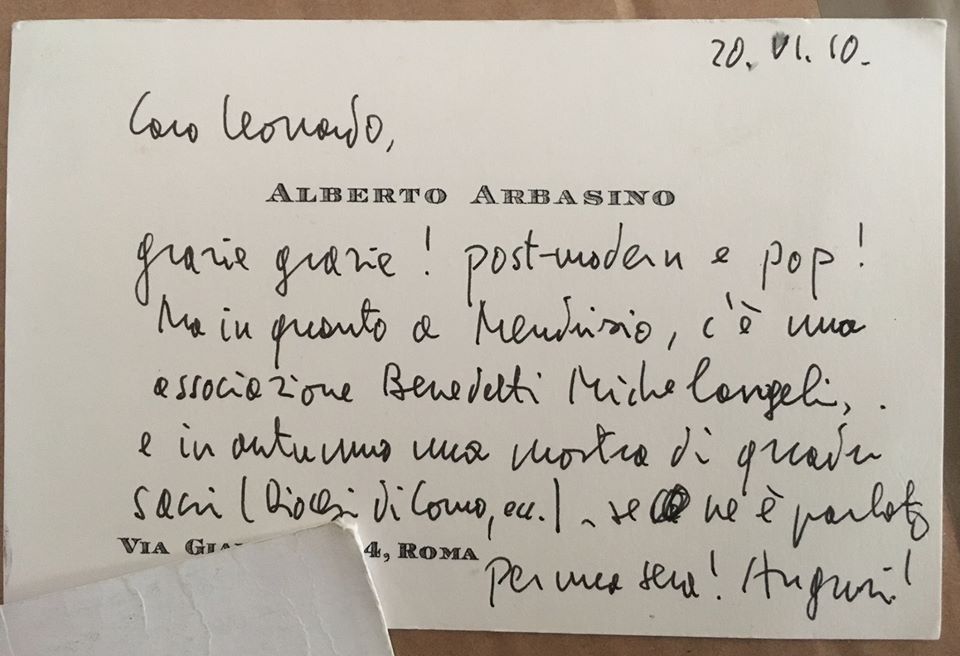 20. VI. 10.
Caro Leonardo,
ALBERTO ARBASINO
grazie grazie! post-modern e pop!
Ma in quanto a Mendrisio, c'è una
associazione Benedetti Michelangeli,
e in autunno una mostra di quadri
sacri (Diocesi di Como, ecc.) - se ne è parlato
VIA GIA 4, ROMA
per una sera! Auguri!